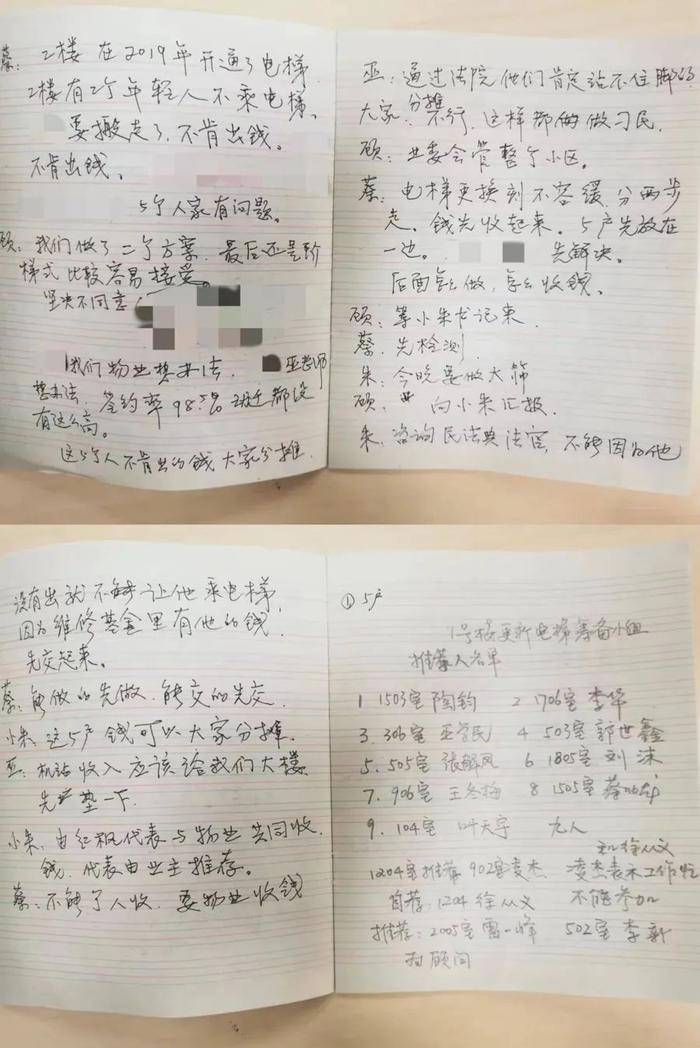 蔡: 2楼 在2019年开通了电梯
2楼有2个年轻人不乘电梯、
要搬走了、不肯出钱。
不肯出钱。
5个人家有问题。
顾: 我们做了二个方案、最后还是阶
梯式比较容易接受。
坚决不同意
我们物业想办法、巫老师
想办法、签约率98.5%动迁都没
有这么高。
这5个人不肯出的钱大家分摊
巫: 通过法院他们肯定站不住脚的
大家分摊不行、这样都做刁民、
顾: 业委会管整个小区。
蔡: 电梯更换刻不容缓、分两步
走。钱先收起来。5户先放在
一边。先解决。
后面怎么做、怎么收钱、
顾: 等小朱书记来、
蔡、先检测、
朱: 今晚要做大筛
顾: 向小朱汇报、
朱、咨询民法典法官、不能因为他
没有出就不能让他乘电梯、
因为维修基金里有他的钱、
先交起来。
蔡: 能做的先做、能交的先交、
小朱: 这5户钱可以大家分摊、
巫: 机站收入应该给我们大楼、
先垫一下、
小朱、由居民代表与物业共同收
钱、代表由业主推荐。
蔡: 不能个人收、要物业收钱
① 5户
1号楼更新电梯筹备小组
推荐人名单
1 1503室 陶钧 2 1706室 李华
3. 306室 巫学民 4 503室 郭世鑫
5. 505室 张解凤 6 1805室 刘沫
7. 906室 王冬梅 8 1505室 蔡
9. 104室 叶天宇 九人
和徐从文
1204室推荐902室凌杰、凌杰表示工作忙
自荐: 1204徐从文 不能参加
推荐: 2005室 雷一峰 502室 李新
为顾问